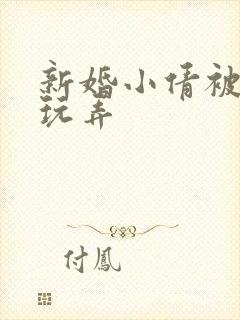 新婚小倩被
玩弄
付鳳